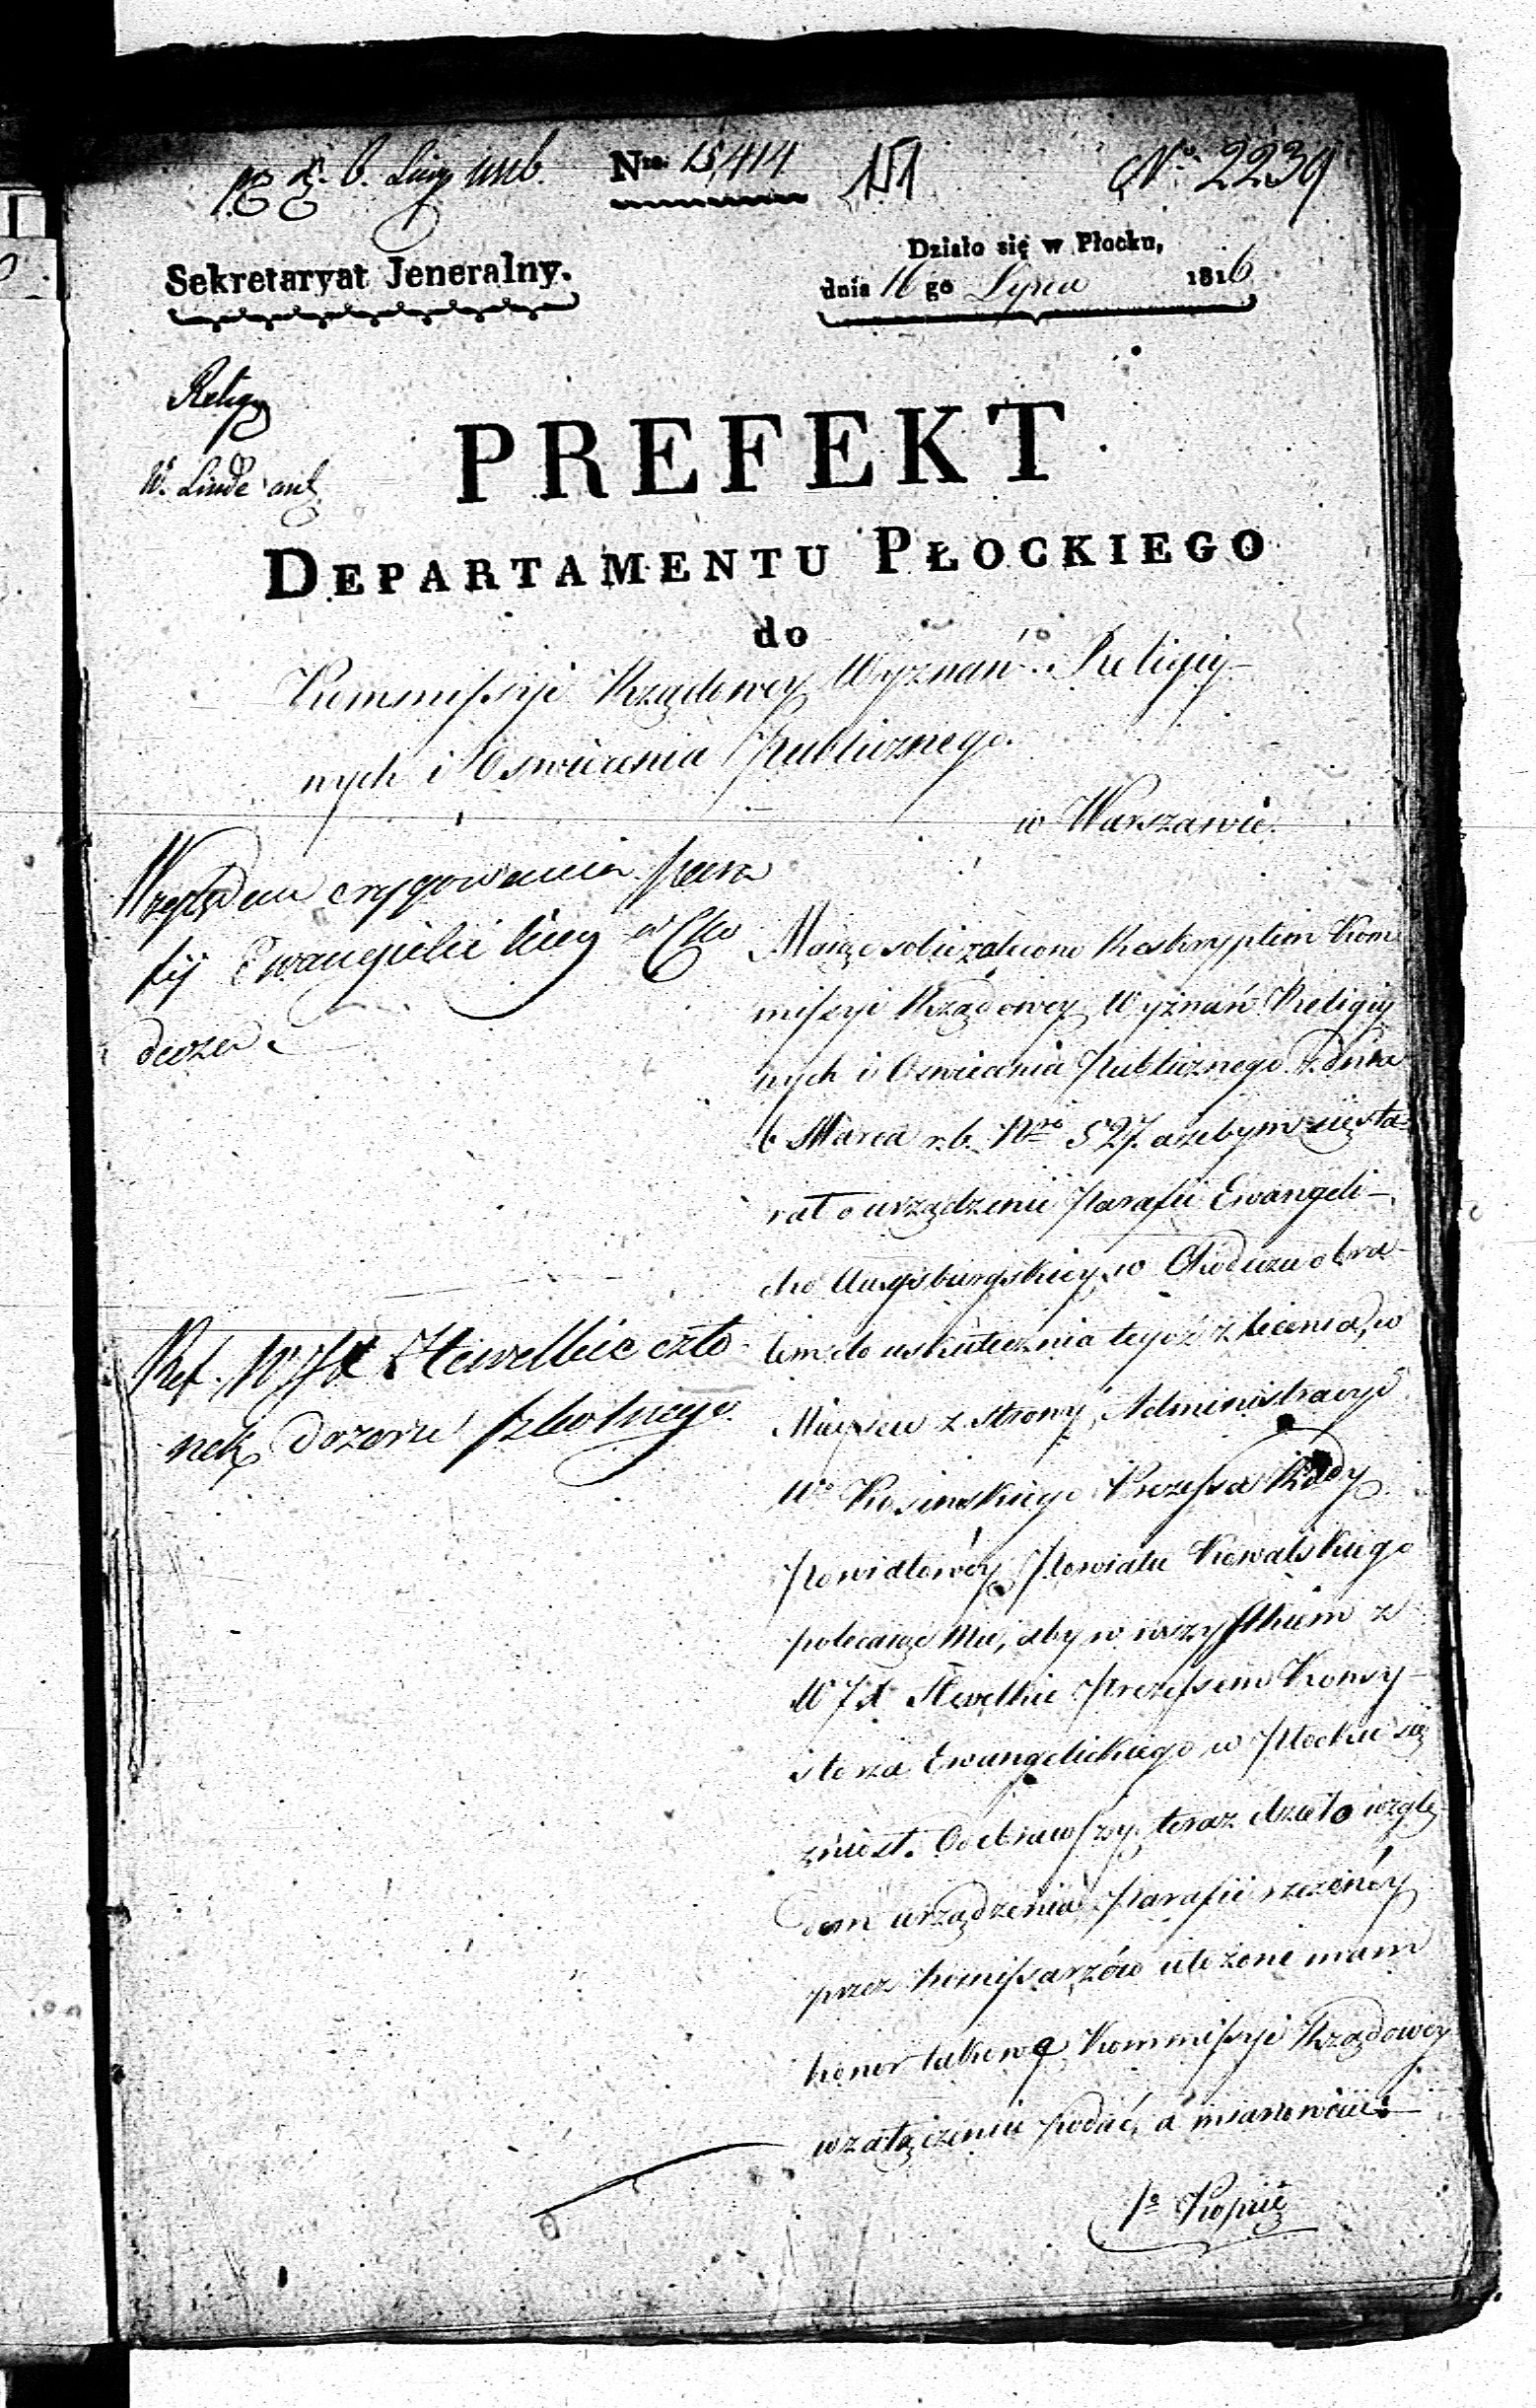 Nro. 15,414
151
No. 2239
Sekretaryat Jeneralny.
Działo się w Płocku,
dnia 16 go Lipca 1816
Religij
W. Linde
PREFEKT
DEPARTAMENTU PŁOCKIEGO
do
Kommissyi Rządowey Wyznań Religiy-
nych i Oswiecenia Publicznego.
w Warszawie.
Względem erygowania para
fij Ewangielickiey w Cho
deczu.
Ref. Hevelkie czło
nek dozoru szkolnego.
Maiąc sobie zalecone Reskryptem Kom
missyi Rządowey Wyznań Religiy
nych i Oswiecenia Publicznego z dnia
6 Marca r. b. Nro 527. ażebym się sta-
rał o urządzenie Parafii Ewangeli-
cko Augsburgskiey w Chodeczu obra-
łem do uskutecznia tegoż zlecenia, w
Mieyscu z strony Administracyi
Wo Kosinskiego Prezessa Rady
Powiatowéy Powiatu Kowalskiego
polecaiąc Mu, aby w wszystkiem z
Hevelkie Prezessem Konsy-
storza Ewangelickiego w Płocku się
zniosł. Odebrawszy teraz dzieło wzglę-
dem urządzenia Parafii rzeczonéy
przez Komissarzów ułożone mam
honor takowe Kommissyi Rządowey
w załączeniu podać, a mianowicie:
1o Kopiię